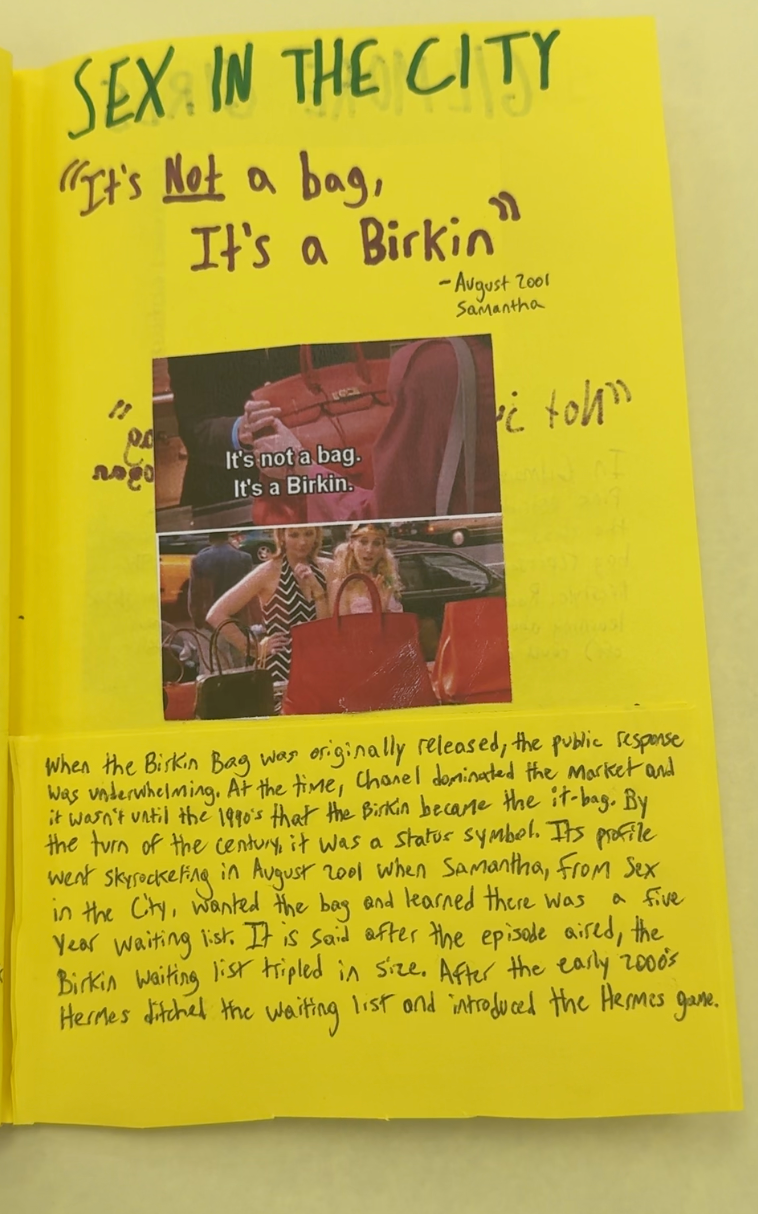 SEX IN THE CITY
"It's Not a bag,
It's a Birkin"
-August 2001
Samantha
It's not a bag.
It's a Birkin.
When the Birkin Bag was originally released, the public response
was underwhelming. At the time, Chanel dominated the market and
it wasn't until the 1990's that the Birkin became the it-bag. By
the turn of the century, it was a status symbol. Its profile
went skyrocketing in August 2001 when Samantha, from Sex
in the City, wanted the bag and learned there was a five
year waiting list. It is said after the episode aired, the
Birkin waiting list tripled in size. After the early 2000's
Hermes ditched the waiting list and introduced the Hermes game.